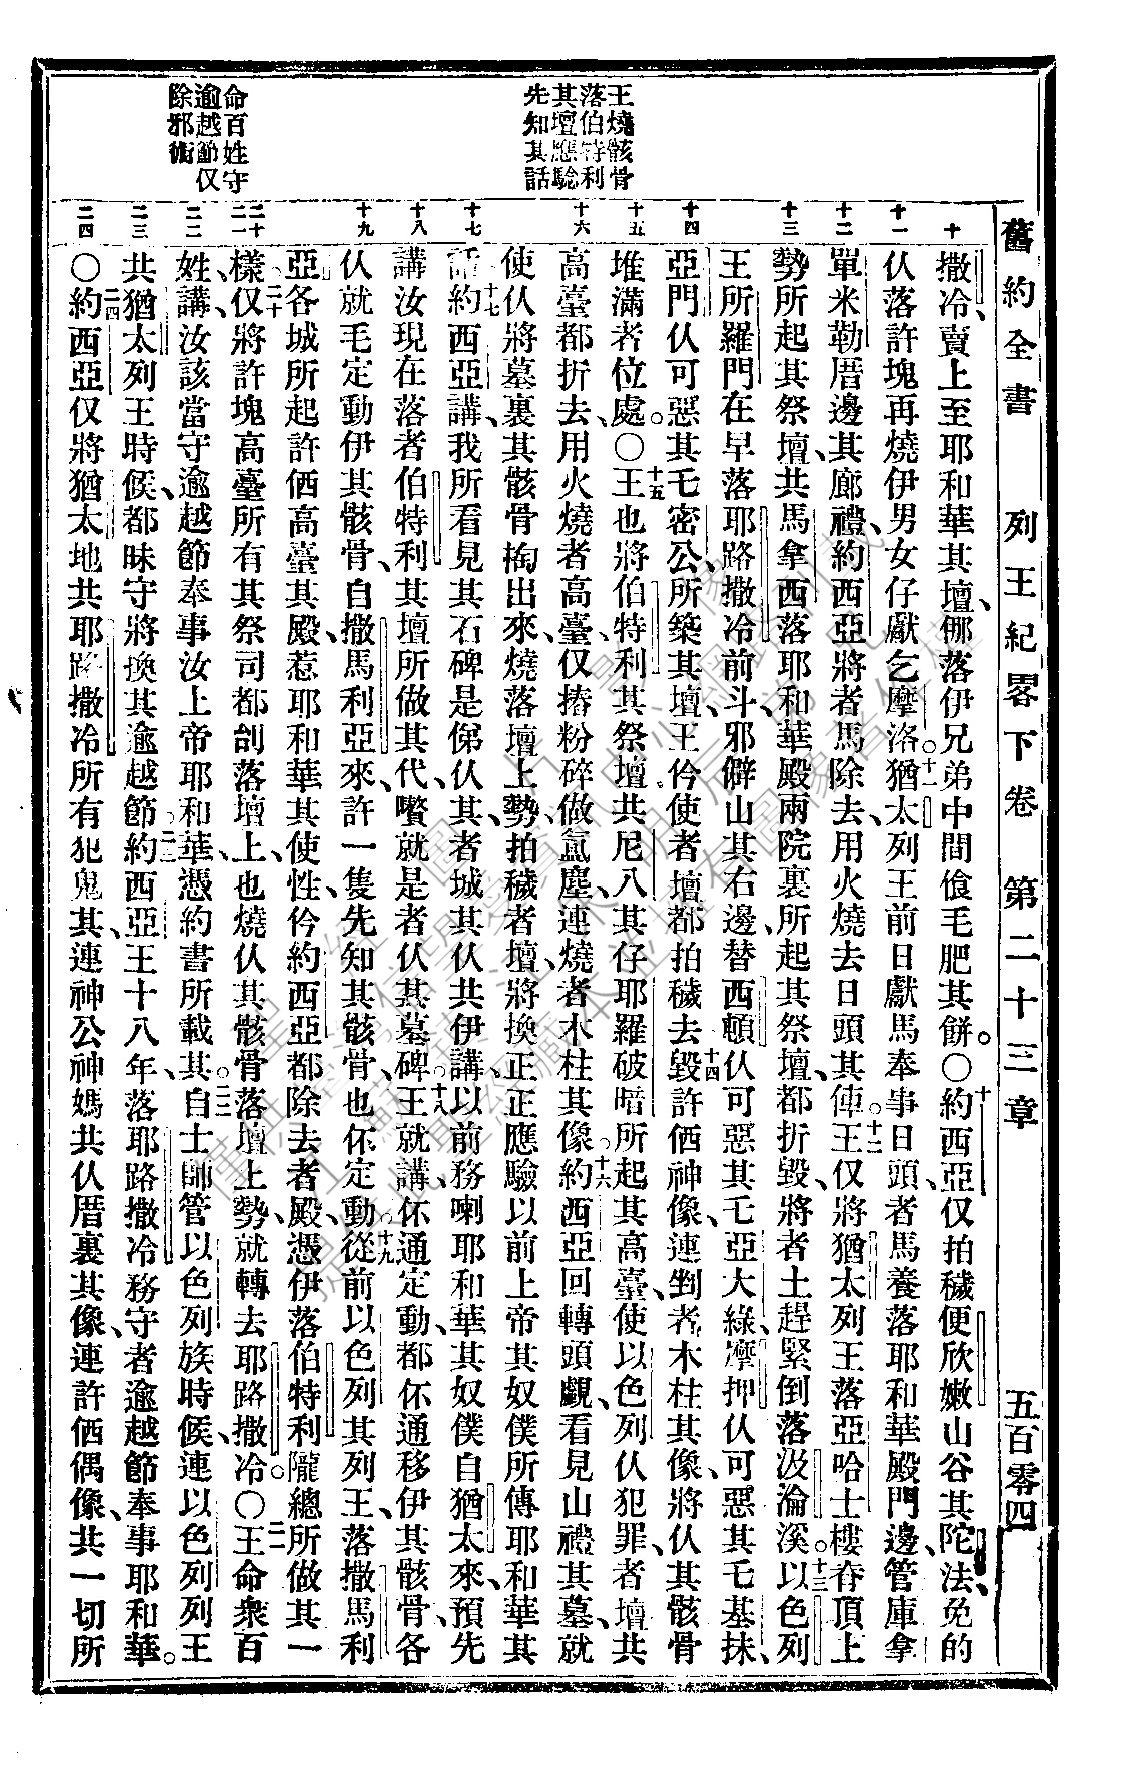 舊約全書 列王紀畧下卷 第二十三章 五百零四
王燒骸骨
落伯特利
其壇應騐
先知其話
命百姓守
逾越節仅
除邪術
十
十一
十二
十三
十四
十五
十六
十七
十八
十九
二十
二一
二二
二三
二四
撒冷、賣上至耶和華其壇、㑚落伊兄弟中間飧毛肥其餅。○十約西亞仅拍穢便欣嫩山谷其陀法、免的
仈落許塊再燒伊男女仔獻乞摩洛。十一猶太列王前日獻馬奉事日頭、者馬養落耶和華殿門邊、管庫拿
單米勒厝邊其廊禮、約西亞將者馬除去、用火燒去日頭其俥。十二王仅將猶太列王落亞哈士樓脊頂上
勢所起其祭壇、共馬拿西落耶和華殿兩院裏所起其祭壇、都折毀、將者土趕緊倒落汲淪溪。十三以色列
王所羅門在早落耶路撒冷前斗、邪僻山其右邊、替西頓仈可惡其乇亞大綠、摩押仈可惡其乇基抹、
亞門仈可惡其乇密公、所築其壇、王仱使者壇都拍穢去。十四毀許㐰神像、連剉者木柱其像、將仈其骸骨
堆滿者位處。○十五王也將伯特利其祭壇、共尼八其仔耶羅破暗所起其高臺、使以色列仈犯罪、者壇共
高臺都折去、用火燒者高臺、仅摏粉碎做氲塵、連燒者木柱其像。十六約西亞回轉頭覷、看見山禮其墓、就
使仈將墓裏其骸骨掏出來、燒落壇上勢、拍穢者壇、將換正正應驗以前上帝其奴僕所傳耶和華其
話。十七約西亞講、我所看見其石碑是俤仈其、者城其仈共伊講、以前務喇耶和華其奴僕自猶太來、預先
講汝現在落者伯特利其壇所做其代、嚽就是者仈其墓碑。十八王就講、伓通定動、都伓通移伊其骸骨、各
仈就毛定動伊其骸骨、自撒馬利亞來、許一隻先知其骸骨也伓定動。十九從前以色列其列王、落撒馬利
亞各城所起許㐰高臺其殿、惹耶和華其使性、仱約西亞都除去者殿、憑伊落伯特利𨻶總所做其一
樣。二十仅將許塊高臺所有其祭司都刣落壇上、也燒仈其骸骨落壇上勢、就轉去耶路撒冷。○二一王命衆百
姓講、汝該當守逾越節、奉事汝上帝耶和華、憑約書所載其。二二自士師管以色列族時候、連以色列列王
共猶太列王時候、都昧守將換其逾越節。二三約西亞王十八年、落耶路撒冷務守者逾越節奉事耶和華。
○二四約西亞仅將猶太地共耶路撒冷所有犯鬼其、連神公神媽共仈厝裏其像、連許㐰偶像、共一切所